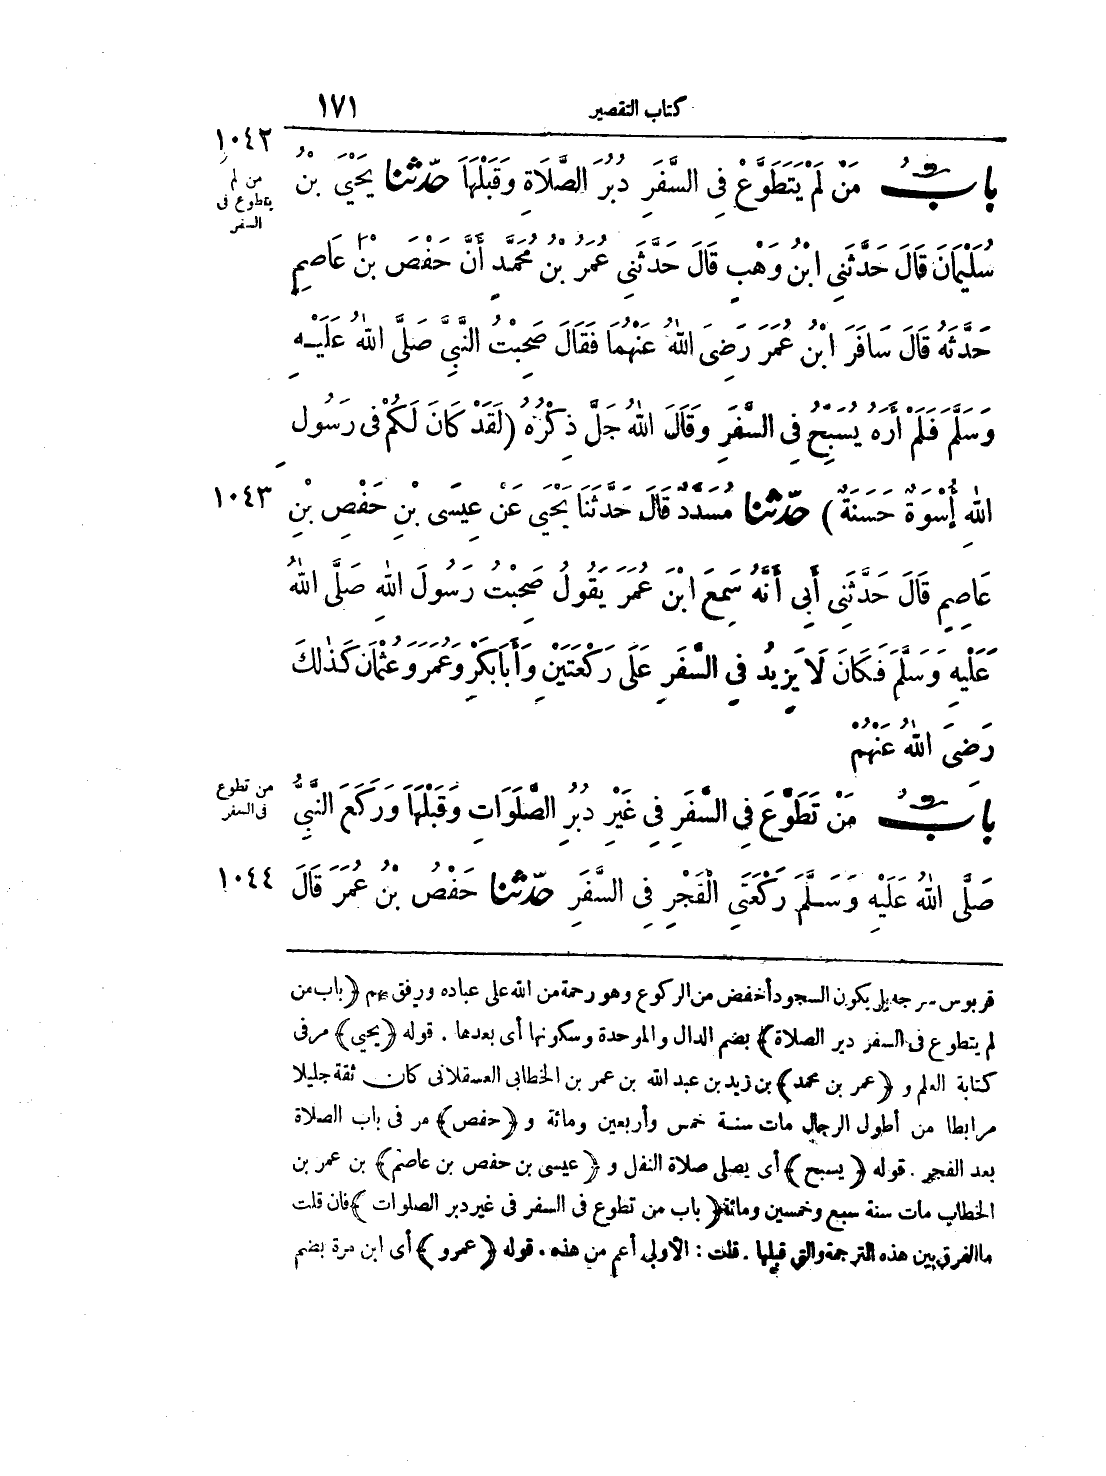 كتاب التقصير ١٧١
١٠٤٢
من لم
يتطوع فى
السفر
بابُ مَنْ لَمْ يَتَطَوَّعْ فِى السَّفَرِ دُبُرَ الصَّلَاةِ وَقَبْلَهَا حَدَّثَنَا يَحْيَى بْنُ
سُلَيْمَانَ قَالَ حَدَّثَنِى ابْنُ وَهْبٍ قَالَ حَدَّثَنِى عُمَرُ بْنُ مُحَمَّدٍ أَنَّ حَفْصَ بْنَ عَاصِمٍ
حَدَّثَهُ قَالَ سَافَرَ ابْنُ عُمَرَ رَضِىَ اللهُ عَنْهُمَا فَقَالَ صَحِبْتُ النَّبِىَّ صَلَّى اللهُ عَلَيْهِ
وَسَلَّمَ فَلَمْ أَرَهُ يُسَبِّحُ فِى السَّفَرِ وَقَالَ اللهُ جَلَّ ذِكْرُهُ (لَقَدْ كَانَ لَكُمْ فِى رَسُولِ
اللهِ أُسْوَةٌ حَسَنَةٌ) حَدَّثَنَا مُسَدَّدٌ قَالَ حَدَّثَنَا يَحْيَى عَنْ عِيسَى بْنِ حَفْصِ بْنِ ١٠٤٣
عَاصِمٍ قَالَ حَدَّثَنِى أَبِى أَنَّهُ سَمِعَ ابْنَ عُمَرَ يَقُولُ صَحِبْتُ رَسُولَ اللهِ صَلَّى اللهُ
عَلَيْهِ وَسَلَّمَ فَكَانَ لَا يَزِيدُ فِى السَّفَرِ عَلَى رَكْعَتَيْنِ وَأَبَا بَكْرٍ وَعُمَرَ وَعُثْمَانَ كَذَلِكَ
رَضِىَ اللهُ عَنْهُمْ
بابُ مَنْ تَطَوَّعَ فِى السَّفَرِ فِى غَيْرِ دُبُرِ الصَّلَوَاتِ وَقَبْلَهَا وَرَكَعَ النَّبِىُّ
من تطوع
فى السفر
صَلَّى اللهُ عَلَيْهِ وَسَلَّمَ رَكْعَتَىِ الْفَجْرِ فِى السَّفَرِ حَدَّثَنَا حَفْصُ بْنُ عُمَرَ قَالَ ١٠٤٤
قربوس سرجه بل يكون السجود أخفض من الركوع وهو رحمة من الله على عباده ورفق بهم ﴿باب من
لم يتطوع فى السفر دبر الصلاة﴾ بضم الدال والموحدة وسكونها أى بعدها. قوله ﴿يحيى﴾ مر فى
كتابة العلم و﴿عمر بن محمد﴾ بن زيد بن عبد الله بن عمر بن الخطابى العسقلانى كان ثقة جليلا
مرابطا من أطول الرجال مات سنة خمس وأربعين ومائة و﴿حفص﴾ مر فى باب الصلاة
بعد الفجر. قوله ﴿يسبح﴾ أى يصلى صلاة النفل و﴿عيسى بن حفص بن عاصم﴾ بن عمر بن
الخطاب مات سنة سبع وخمسين ومائة ﴿باب من تطوع فى السفر فى غير دبر الصلوات﴾ فان قلت
ما الفرق بين هذه الترجمة والتى قبلها. قلت: الأولى أعم من هذه. قوله ﴿عمرو﴾ أى ابن مرة بضم